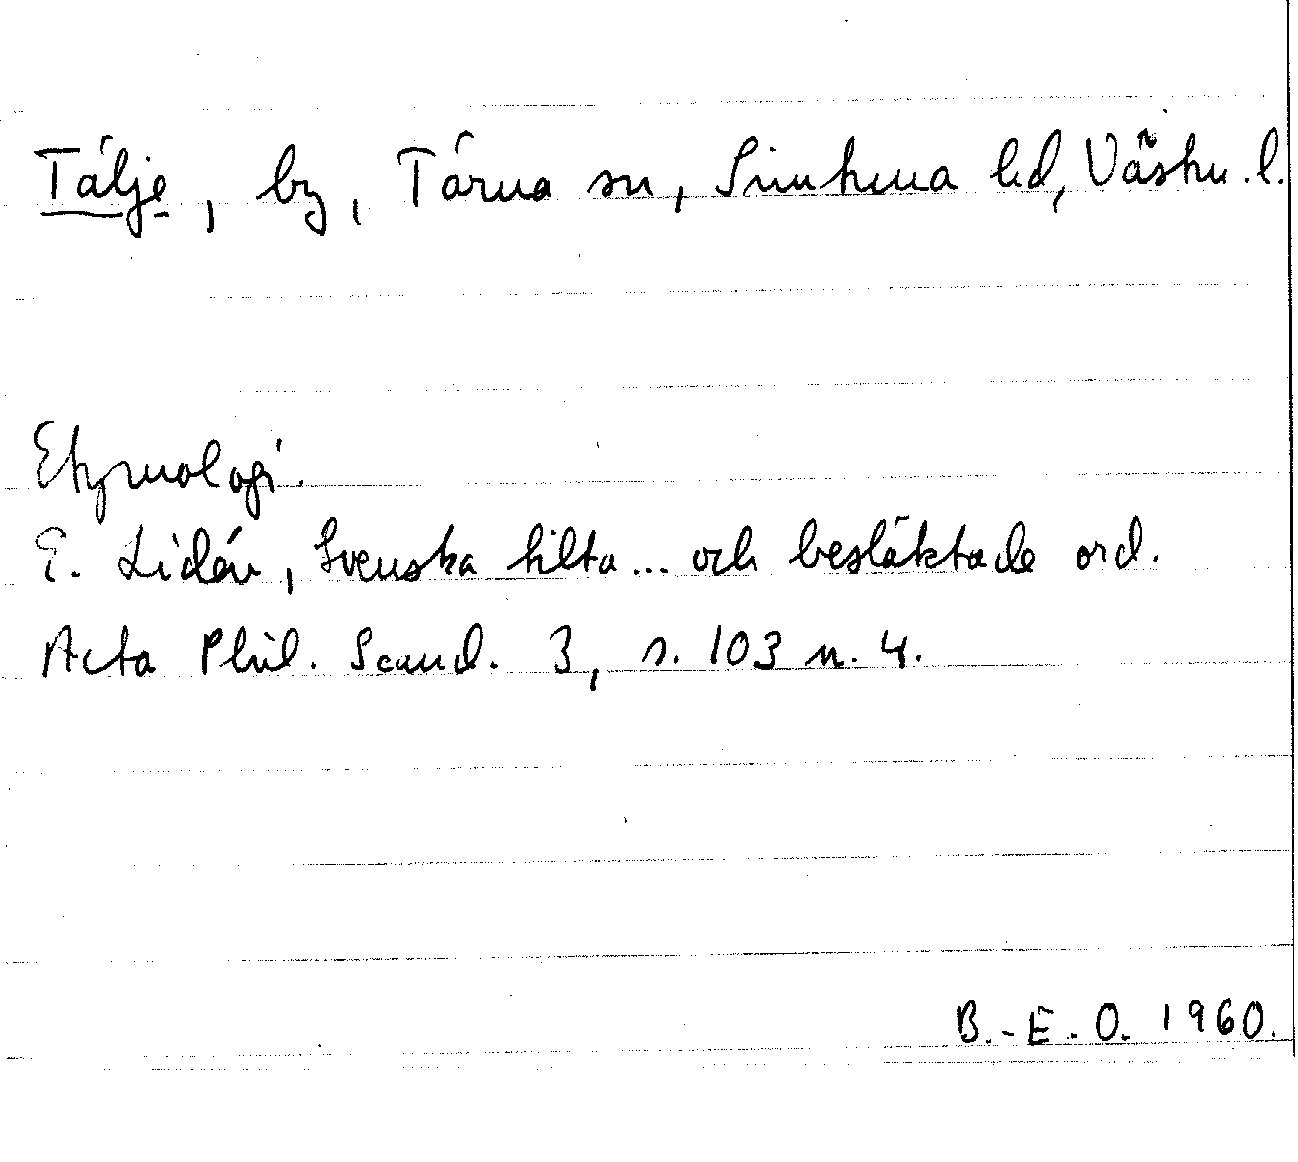 Tälje, by, Tärna sn, Simtuna hd, Västm. l.
Etymologi.
E. Lidén, Svenska tilta... och besläktade ord.
Acta Phil. Scand. 3, s. 103 n. 4.
B.-E. O. 1960.